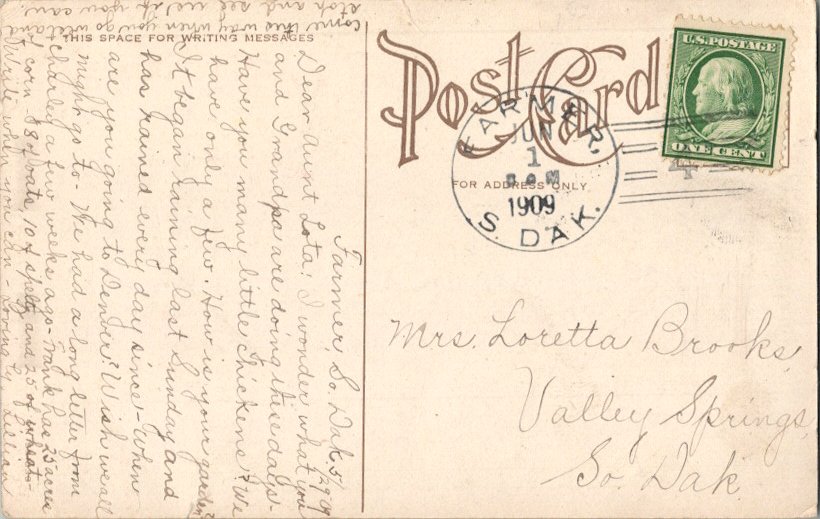 THIS SPACE FOR WRITING MESSAGES
Post Card
FOR ADDRESS ONLY
U.S. POSTAGE
ONE CENT
FARMER,
JUN
1
1909
S. DAK.
4
Mrs. Loretta Brooks,
Valley Springs,
So. Dak.
Farmer, So. Dak. 5/29/09
Dear Aunt Lota; I wonder what you
and Grandpa are doing these days-
Have you many little chickens? We
have only a few. How is your garden?
It began raining last Sunday and
has rained every day since- When
are you going to Denver? Wish we all
might go to- We had a long letter from
Charles a few weeks ago- Frank has 25 acres
of corn 38 of oats, 10 of speltz and 25 of wheat-
Write when you can- Loving ly Lillian
come this way when you go west and
stop and see us if you can.